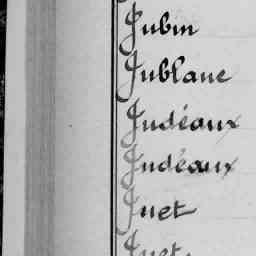 Jubin
Jublanc
Judéaux
Judéaux
Juet
Juet